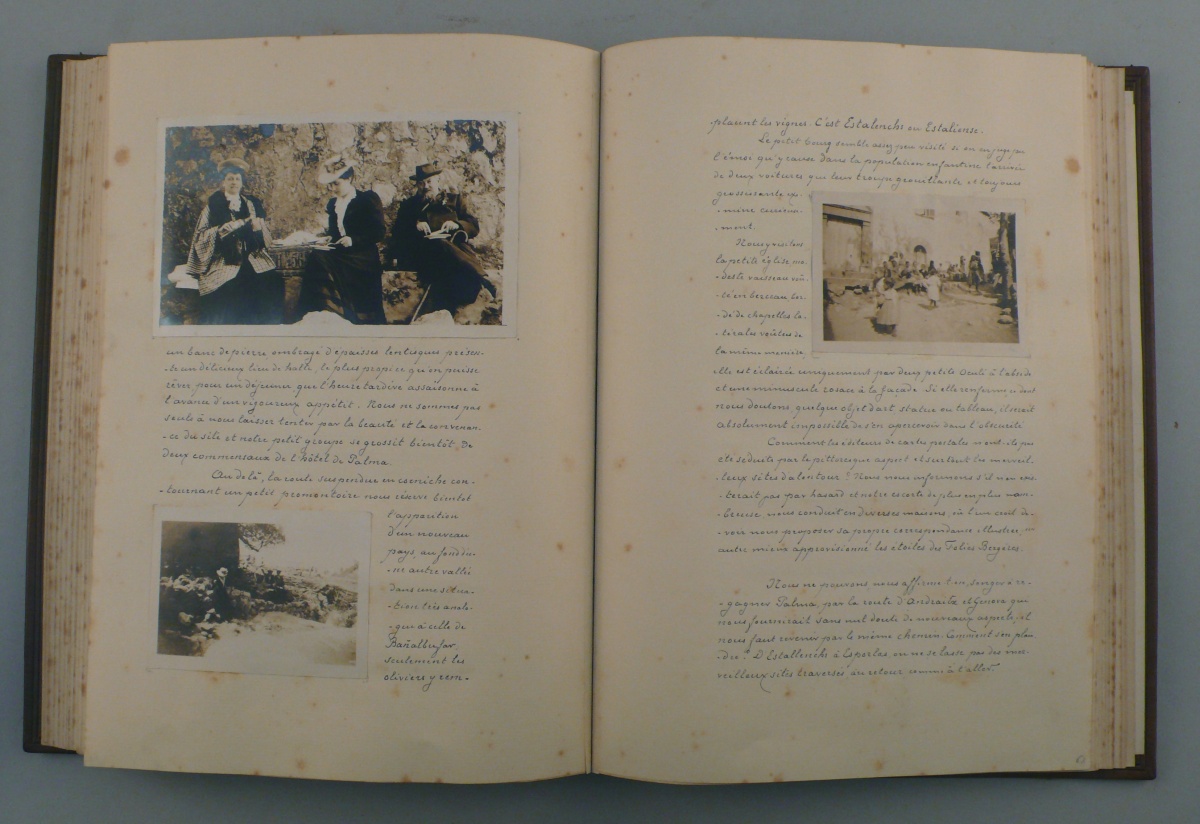 un banc de pierre ombragé d'épaisses lentisques présen-
-te un délicieux lieu de halte, le plus propice qu'on puisse
rêver pour un déjeuner que l'heure tardive assaisonne à
l'avance d'un vigoureux appétit. Nous ne sommes pas
seuls à nous laisser tenter par la beauté et la convenan-
-ce du site et notre petit groupe se grossit bientôt, de
deux commensaux de l'hôtel de Palma.
Au delà, la route suspendue en corniche con-
-tournant un petit promontoire nous réserve bientôt
l'apparition
d'un nouveau
pays, au fond d'u-
-ne autre vallée
dans une situa-
-tion très analo-
-gue à celle de
Bañalbufar,
seulement les
oliviers y rem-
-placent les vignes. C'est Estalenchs ou Estaliense.
Le petit bourg semble assez peu visité si on en juge par
l'émoi qu'y cause dans la population enfantine l'arrivée
de deux voitures que leur troupe grouillante et toujours
grossissante ex-
-amine curieuse-
-ment.
Nous visitons
la petite église, mo-
-deste vaisseau voû-
-té en berceau, bor-
-dé de chapelles la-
-térales voûtées de
la même manière,
elle est éclairée uniquement par deux petits oculi à l'abside
et une minuscule rosace à la façade. Si elle renferme, ce dont
nous doutons, quelque objet d'art, statue ou tableau, il serait
absolument impossible de s'en apercevoir dans l'obscurité
Comment les éditeurs de cartes postales n'ont-ils pas
été séduits par le pittoresque aspect et surtout les merveil-
-leux sites d'alentour? Nous nous informons s'il n'en exis-
-terait pas par hasard et notre escorte de plus en plus nom-
-breuse, nous conduit en diverses maisons, où l'un croit de-
-voir nous proposer sa propre correspondance illustrée, un
autre mieux approvisionné, les étoiles des Folies Bergères.
Nous ne pouvons nous affirme t-on, songer à re-
-gagner Palma, par la route d'Andraitx et Genova qui
nous fournirait sans nul doute de nouveaux aspects, et
nous faut revenir par le même chemin. Comment s'en plain-
-dre? D'Estallenchs à Esporlas, on ne se lasse pas des mer-
-veilleux sites traversés au retour comme à l'aller.